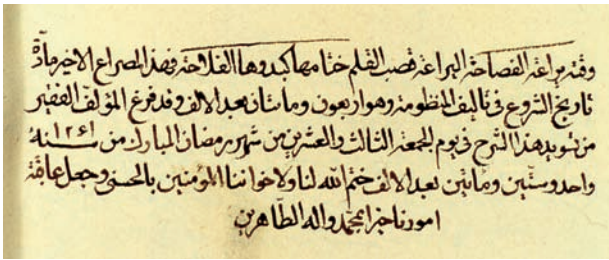 وفيه براعة الفصاحة البراعة قصب القلم ختامها كبدوها الفلاحة فهذا المصراع الاخير مادّة
تاريخ الشروع فى تاليف المنظومة وهو اربعون وماتان بعد الالف وقد فرغ المؤلف الفقير
من تسويد هذا الشرح فى يوم الجمعة الثالث والعشرين من شهر رمضان المبارك من سنه ١٢٦١
واحد وستين وماتين بعد الالف ختم الله لنا ولاخواننا المؤمنين بالحسنى وجعل عاقبة
امورنا خيرا بمحمد واله الطاهرين